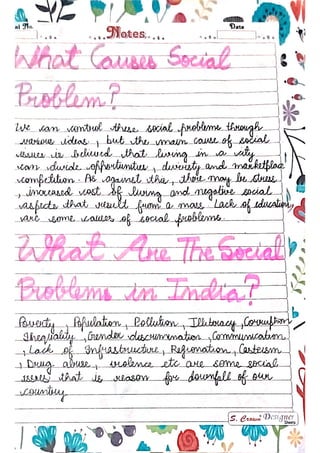 Notes
Date
What Causes Social
Problem?
We can control these social problems through
various ideas, but the main cause of social
issues is believed that living in a city
can divide opportunities, diversity and marketplace
competition. As against this, there may be stress
, increased cost of living and negative social
aspects that result from a mass. Lack of education,
are some causes of social problems.
What Are The Social
Problems in India?
Poverty, Population, Pollution, Illiteracy, Corruption
Inequality, Gender descrimination, Communication,
, Lack of Infrastructure, Regionation, Casteism
, Drug abuse, violence etc are some social
issues that is reason for downfall of our
country.
Designer
Sheets